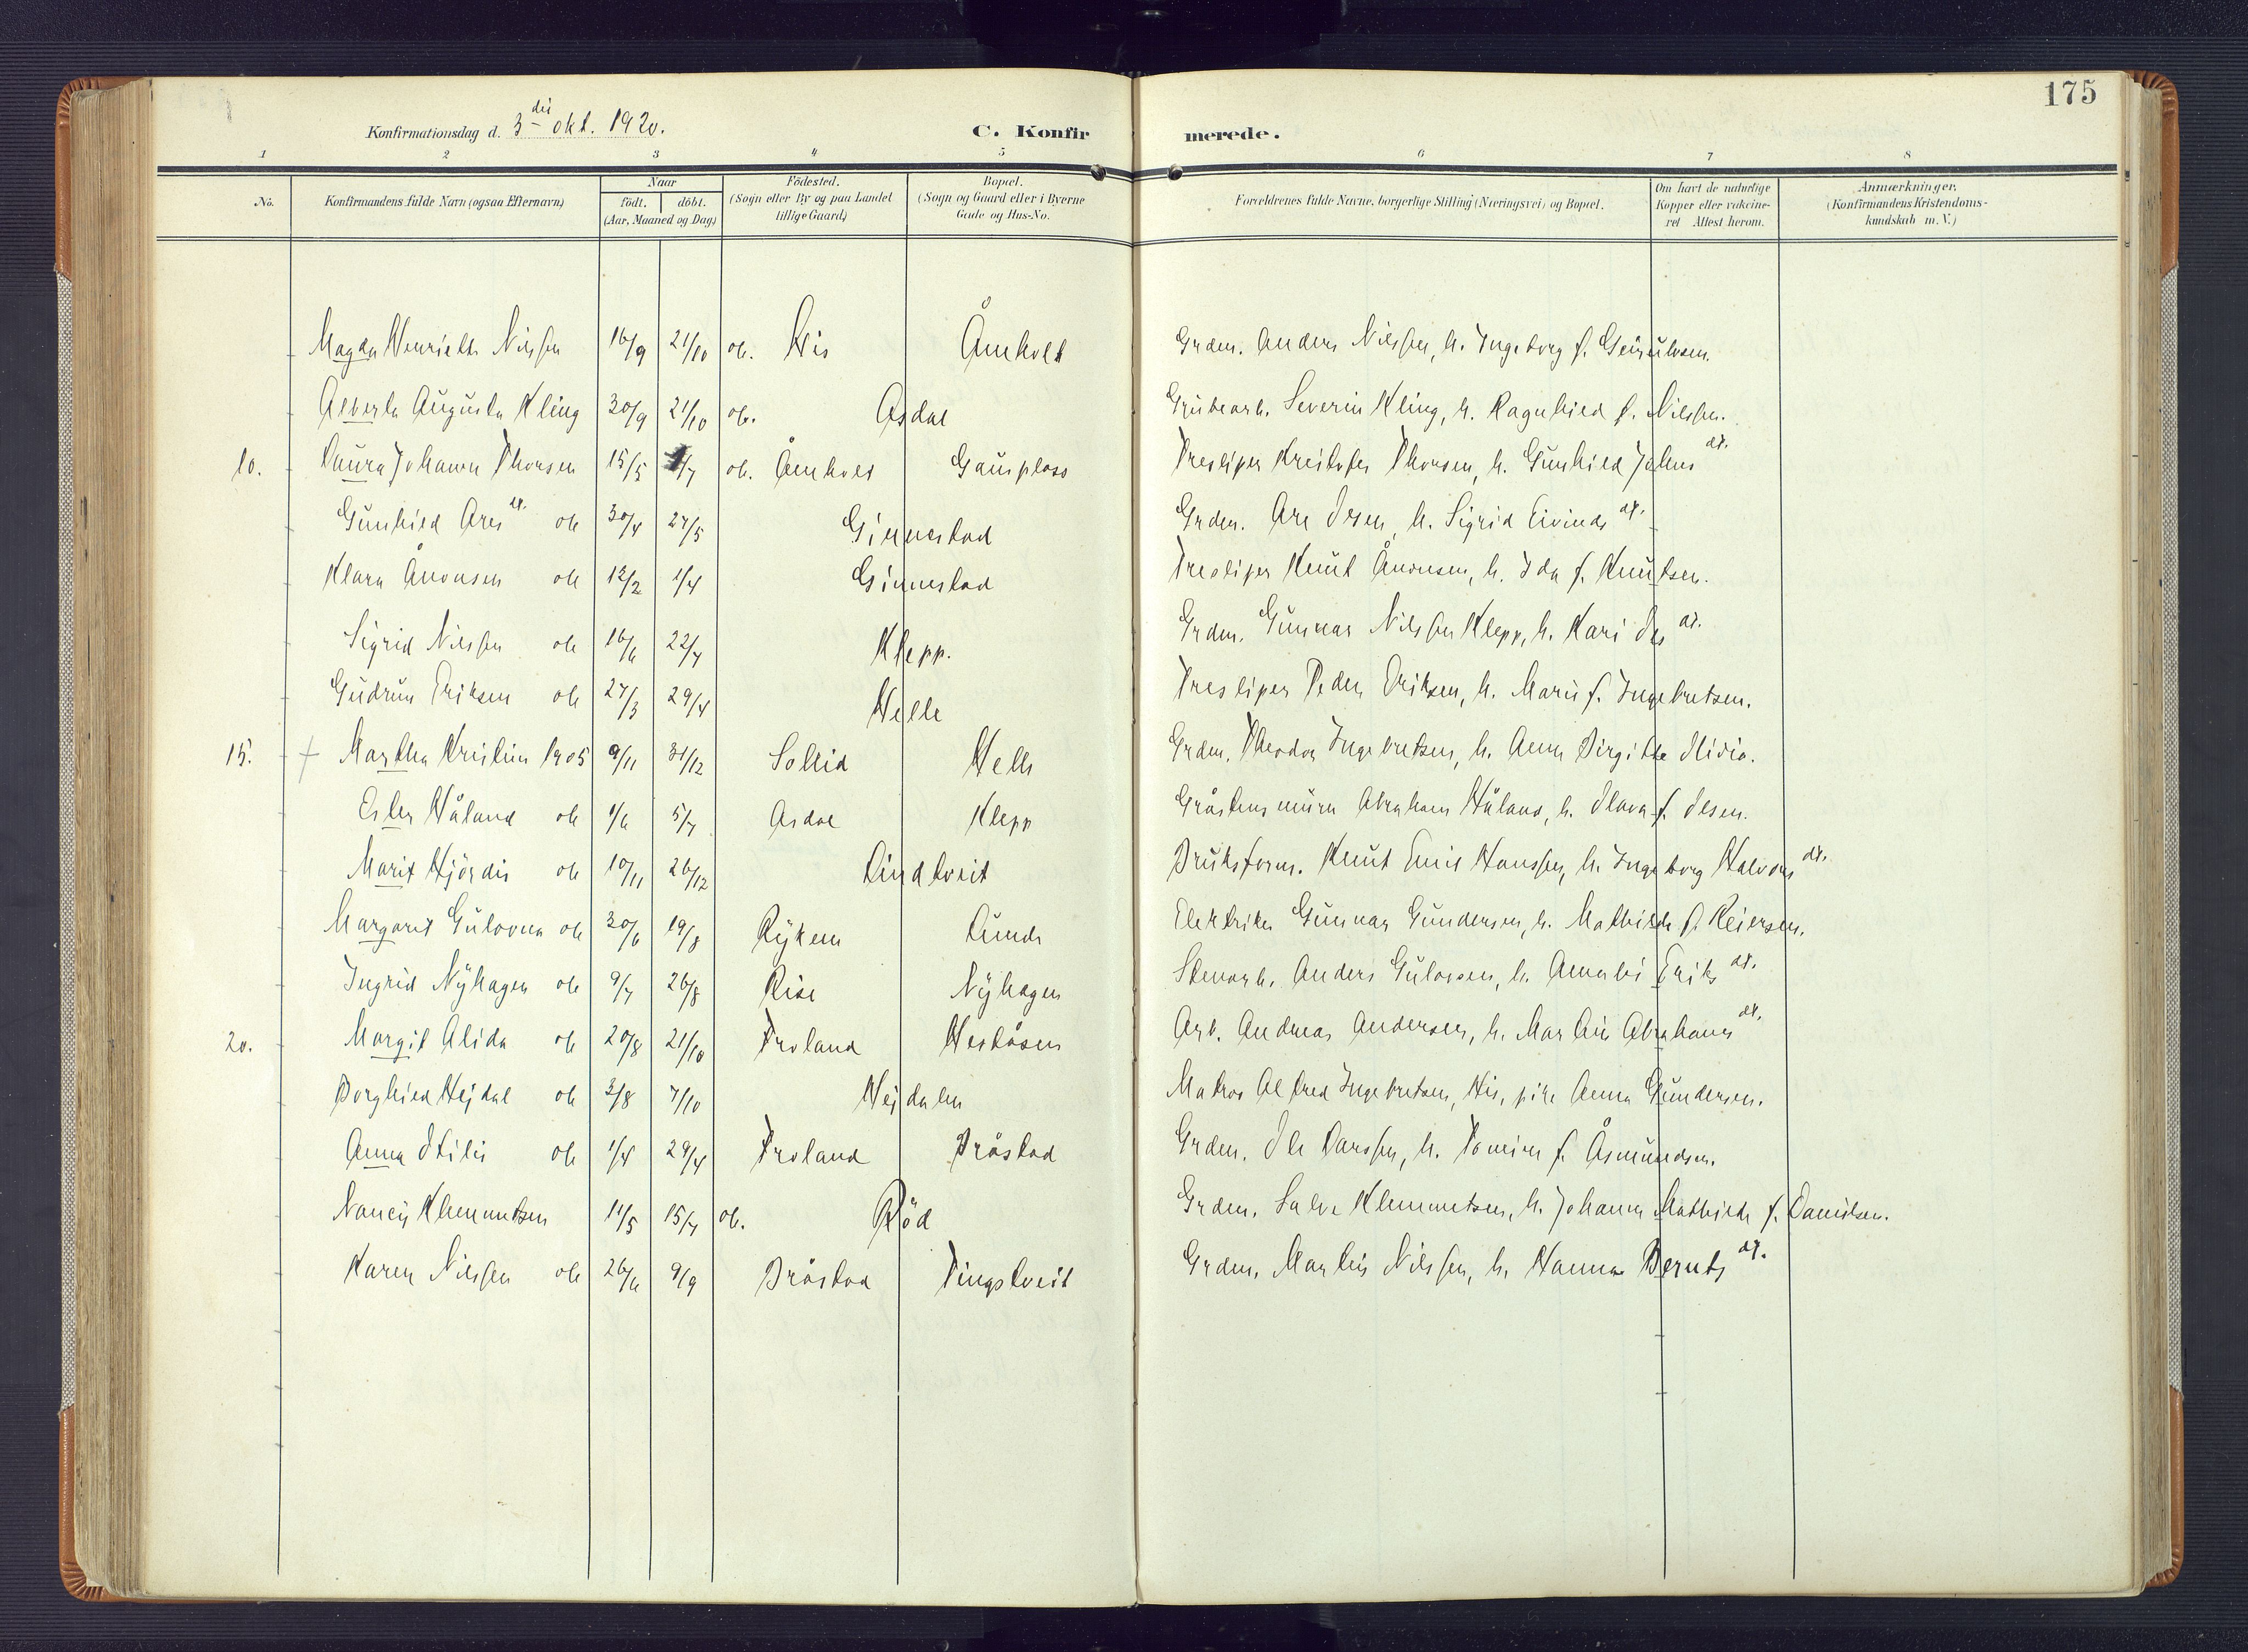 175
Konfirmationsdag d. 3die okt. 1920.
C. Konfirmerede.
1 2 3 4 5 6 7 8
No. Konfirmandens fulde Navn (ogsaa Efternavn) Naar födt. döbt. (Aar, Maaned og Dag) Födested. (Sogn eller By og paa Landet tillige Gaard) Bopæl. (Sogn og Gaard eller i Byerne Gade og Hus-No. Forældrenes fulde Navne, borgerlige Stilling (Næringsvei) og Bopæl. Om havt de naturlige Kopper eller vakcineret Attest herom. Anmærkninger. (Konfirmandens Kristendomskundskab m. V.)
Magda Henriette Nilssen 16/9 21/10 ob. His Åmholt Grdm. Anders Nilssen, h. Ingeborg f. Geirulvsen.
Alberta Augusta Kling 30/9 21/10 ob. Asdal Grubearb. Severin Kling, h. Ragnhild f. Nilssen.
10. Laura Johanne Thorsen 15/5 /7 ob. Åmholt Gausplass Tresliper Kristofer Thorsen, h. Gunhild Johns dt.
Gunhild Ares dt. ob 30/4 27/5 Ginnestad Grdm. Are Olsen, h. Sigrid Eivinds dt.
Klara Ånonsen ob 12/2 1/4 Ginnestad Tresliper Knut Ånonsen, h. Ida f. Knutsen.
Sigrid Nilssen ob 16/6 22/7 Klepp. Grdm. Gunnar Nilssen Klepp, h. Kari Ols dt.
Gudrun Eriksen ob 27/3 29/4 Helle Tresliper Peder Eriksen, h. Marie f. Ingebretsen.
15. + Martha Kristine 1905 9/11 31/12 Sollid Helle Grdm. Theodor Ingebretsen, h. Anna Birgitte Olivia.
Ester Håland ob 1/6 5/7 Asdal Klepp Gråstensmurer Abraham Håland, h. Olava f. Olsen.
Marit Hjördis ob 10/11 26/12 Lindtveit Bruksform. Knut Emil Hanssen, h. Ingeborg Halvors dt.
Margarit Gulovna ob 30/6 19/8 Rykene Lunde Elektriker Gunnar Gundersen, h. Mathilde f. Reiersen.
Ingrid Nyhagen ob 9/7 26/8 Rise Nyhagen Stenarb. Anders Gulovsen, h. Amalie Eriks dt.
20. Margit Alida ob 20/8 21/10 Froland Heståsen Arb. Andreas Andersen, h. Martine Abrahams dt.
Borghild Hejdal ob 3/8 7/10 Hejdalen Matros Alfred Ingebretsen, His, pike Anna Gundersen.
Anna Otilie ob 1/4 29/4 Froland Bråstad Grdm. Ole Larssen, h. Tomine f. Åsmundsen.
Nancy Klemmetsen 11/5 15/7 ob. Röd Grdm. Salve Klemmetsen, h. Johanne Mathilde f. Danielsen.
Karen Nilssen ob 26/6 9/9 Bråstad Tingstveit Grdm. Martin Nilssen, h. Hanna Bernts dt.